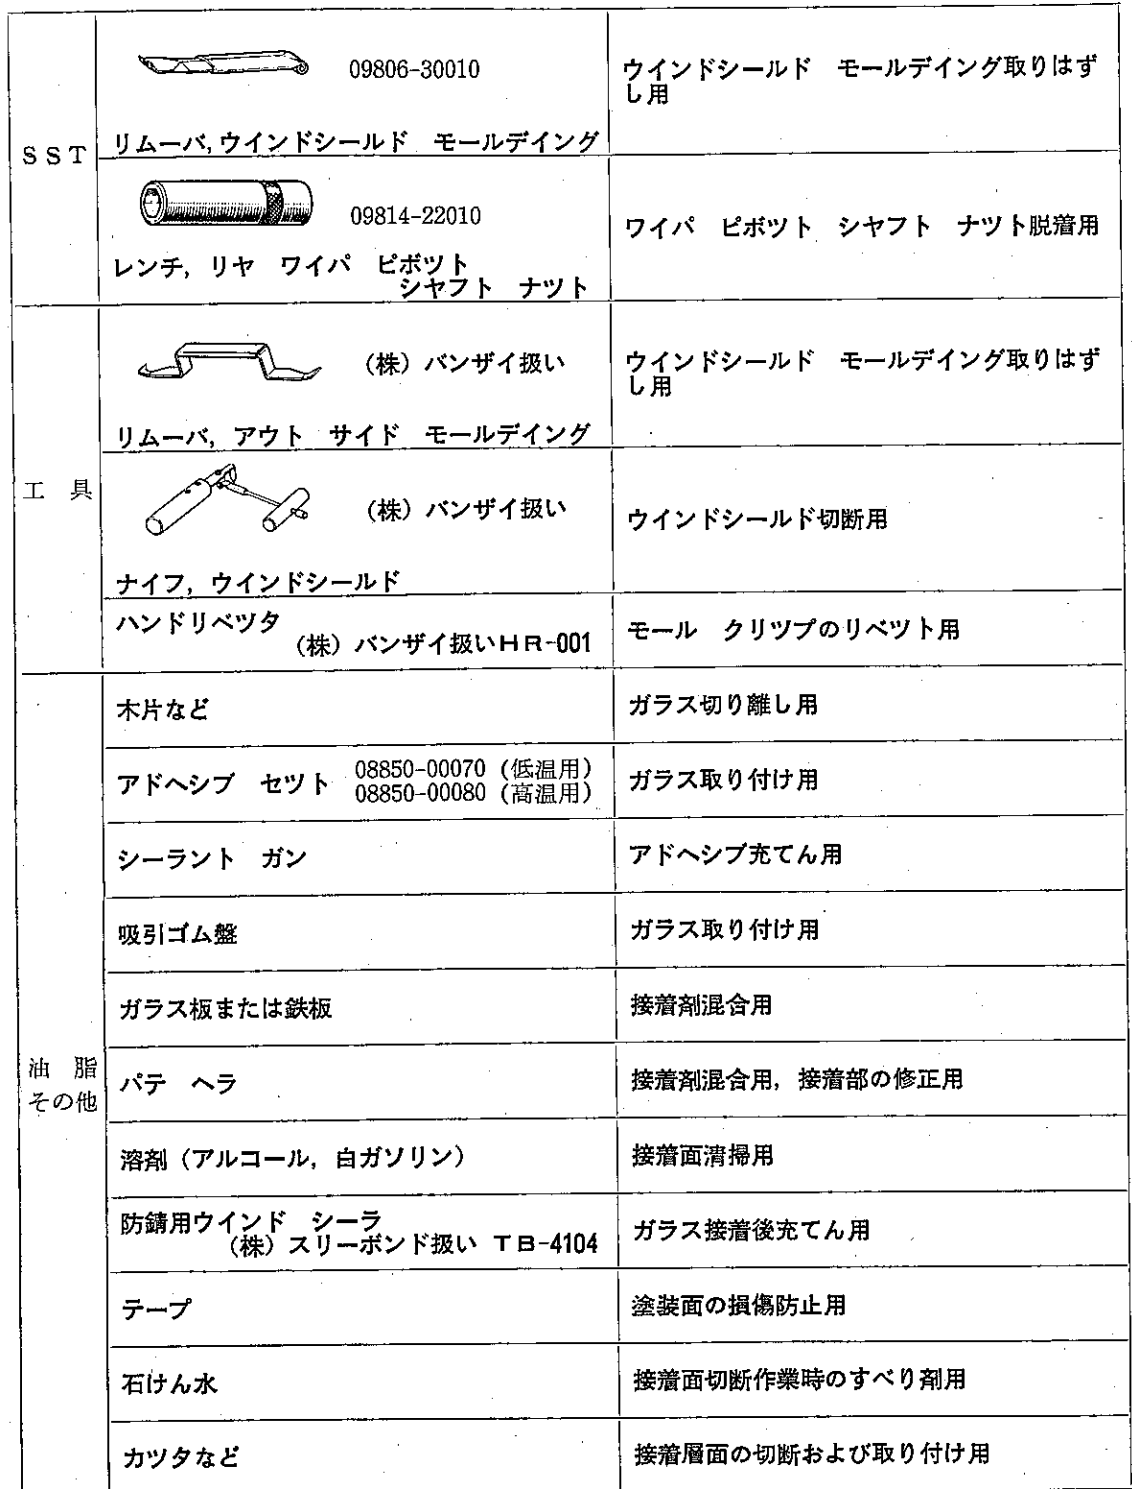 SST
09806-30010
リムーバ, ウインドシールド　モールデイング
ウインドシールド　モールデイング取りはず
し用
09814-22010
レンチ, リヤ　ワイパ　ピボツト
シヤフト　ナツト
ワイパ　ピボツト　シヤフト　ナツト脱着用
工　具
（株）バンザイ扱い
リムーバ, アウト　サイド　モールデイング
ウインドシールド　モールデイング取りはず
し用
（株）バンザイ扱い
ナイフ, ウインドシールド
ウインドシールド切断用
ハンドリベツタ
（株）バンザイ扱いHR-001
モール　クリツプのリベツト用
油　脂
その他
木片など
ガラス切り離し用
アドヘシブ　セツト
08850-00070（低温用）
08850-00080（高温用）
ガラス取り付け用
シーラント　ガン
アドヘシブ充てん用
吸引ゴム盤
ガラス取り付け用
ガラス板または鉄板
接着剤混合用
パテ　ヘラ
接着剤混合用, 接着部の修正用
溶剤（アルコール, 白ガソリン）
接着面清掃用
防錆用ウインド　シーラ
（株）スリーボンド扱い　TB-4104
ガラス接着後充てん用
テープ
塗装面の損傷防止用
石けん水
接着面切断作業時のすべり剤用
カツタなど
接着層面の切断および取り付け用